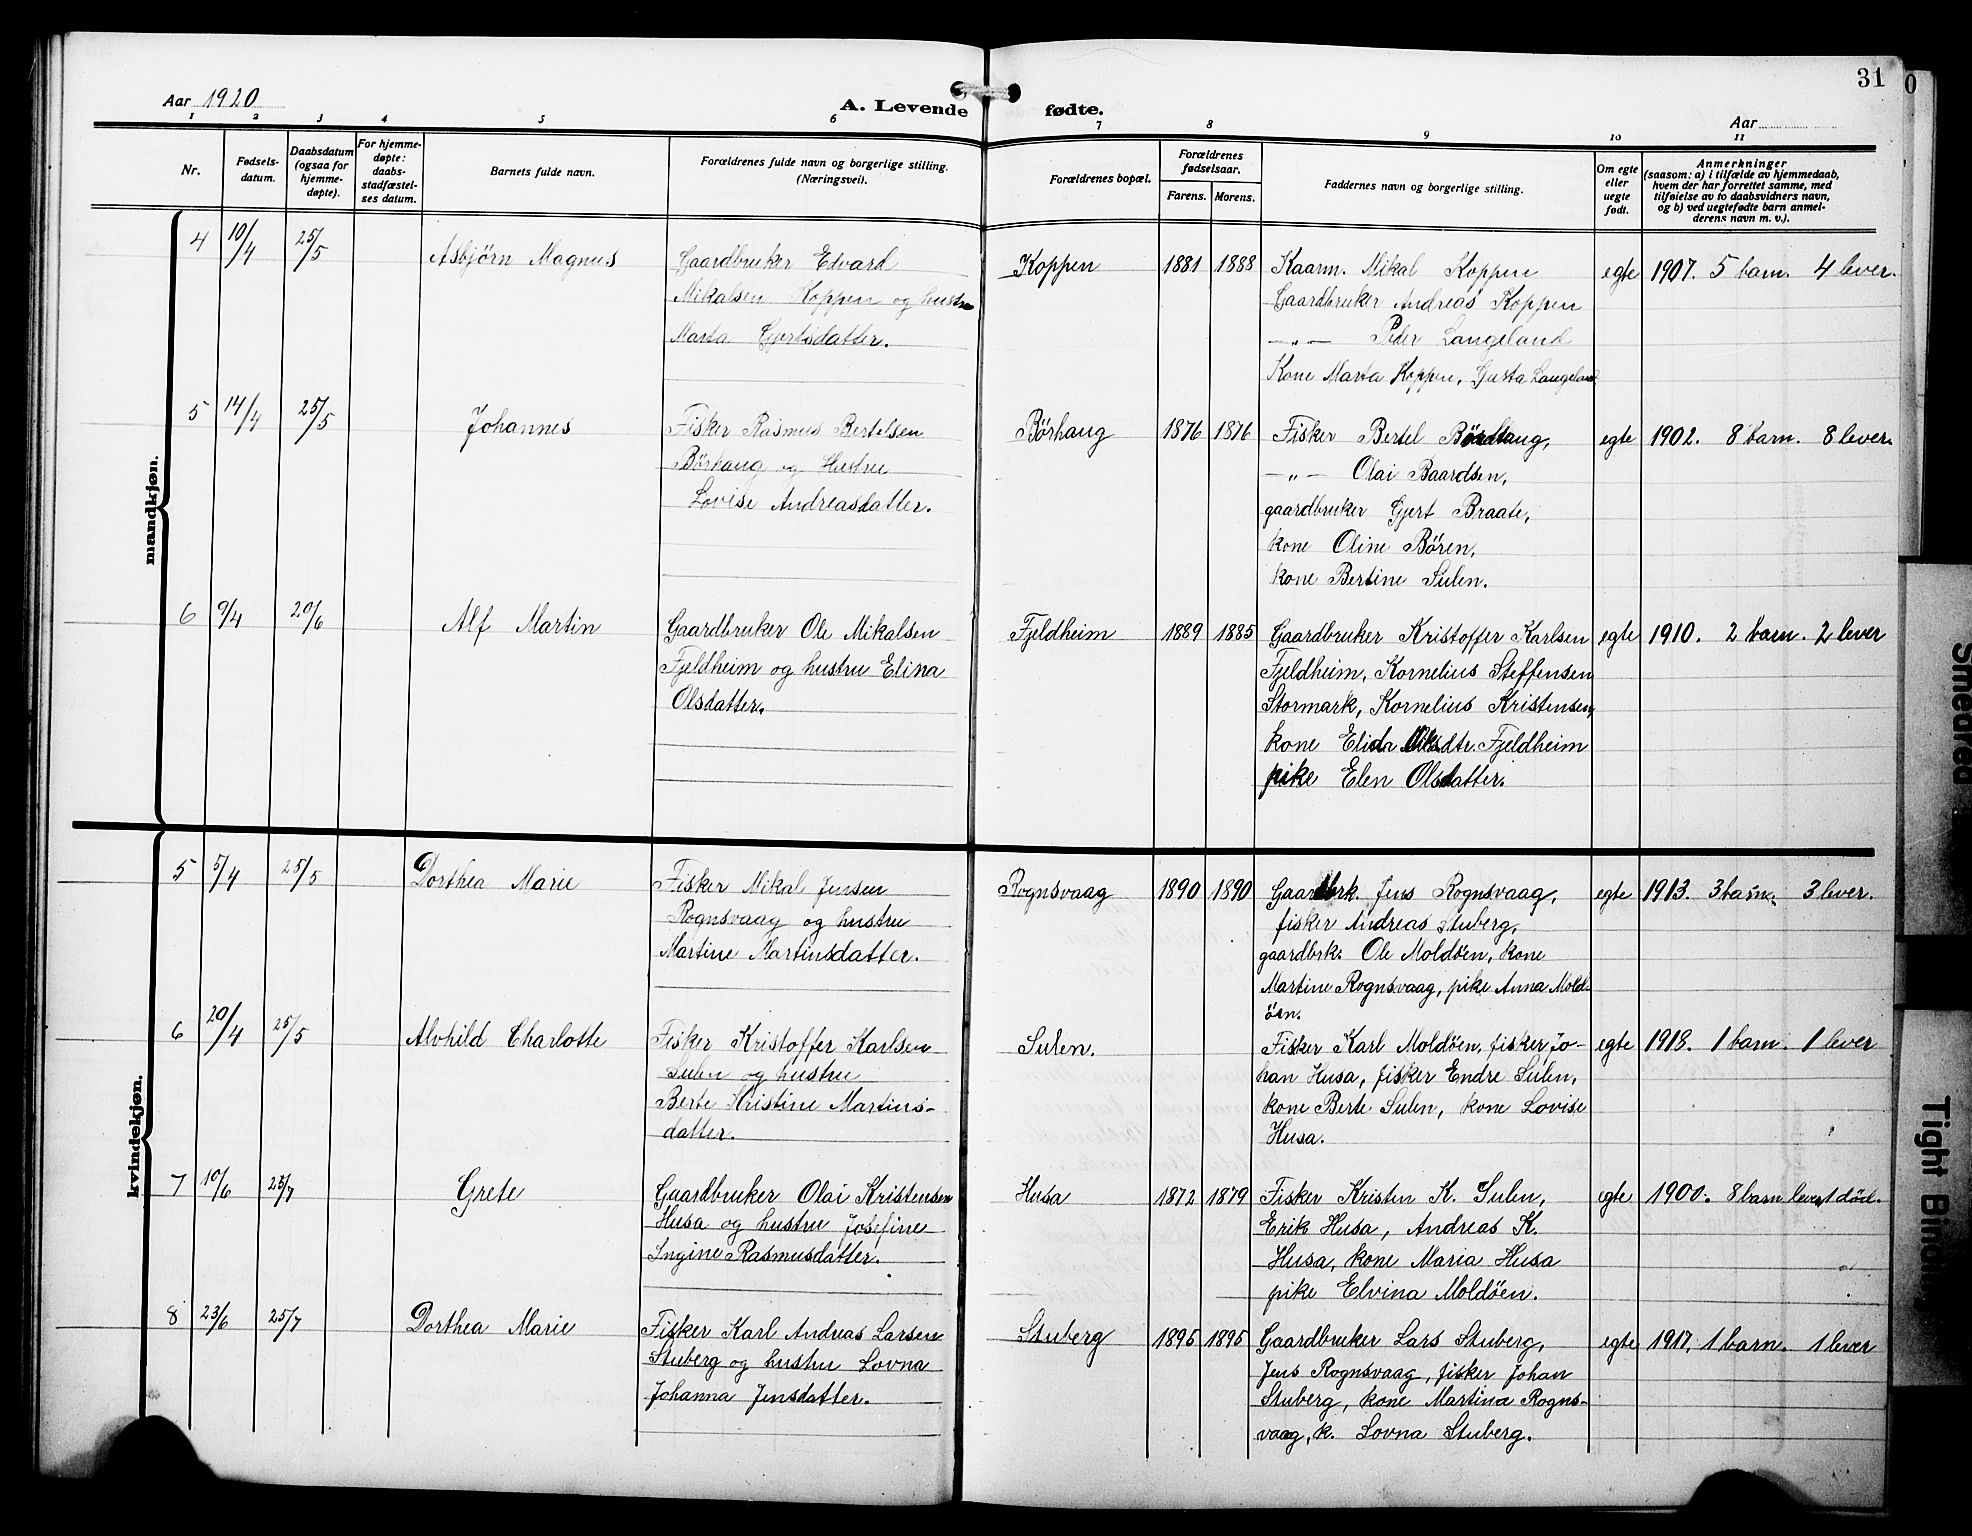 31
Aar 1920
A. Levende fødte.
Aar
1 2 3 4 5 6 7 8 9 10 11
Nr.
Fødsels-
datum.
Daabsdatum
(ogsaa for
hjemme-
døpte).
For hjemme-
døpte:
daabs-
stadfæstel-
ses datum.
Barnets fulde navn.
Forældrenes fulde navn og borgerlige stilling.
(Næringsvei).
Forældrenes bopæl.
Forældrenes
fødselsaar.
Farens. Morens.
Faddernes navn og borgerlige stilling.
Om egte
eller
uegte
født.
Anmerkninger
(saasom: a) i tilfælde av hjemmedaab,
hvem der har forrettet samme, med
tilføielse av to daabsvidners navn,
og b) ved uegtefødte barn anmel-
derens navn m. v.).
mandkjøn.
4 10/4 25/5 Asbjörn Magnus
Gaardbruker Edvard
Mikalsen Koppen og hustru
Marta Gjertsdatter.
Koppen 1881 1888
Kaarm. Mikal Koppen
Gaardbruker Andreas Koppen
—„— Peder Langeland
Kone Marta Koppen, Gusta Langeland
egte 1907. 5 barn. 4 lever.
5 14/4 25/5 Johannes
Fisker Rasmus Bertelsen
Börhaug og Hustru
Lovise Andreasdatter.
Börhaug 1876 1876
Fisker Bertel Börhaug,
—„— Olai Baardsen,
gaardbruker Gjert Braate,
kone Oline Bören,
kone Bertine Sulen.
egte 1902. 8 barn. 8 lever.
6 9/4 20/6 Alf Martin
Gaardbruker Ole Mikalsen
Fjeldheim og hustru Elina
Olsdatter.
Fjeldheim 1889 1885
Gaardbruker Kristoffer Karlsen
Fjeldheim, Kornelius Steffensen
Stormark, Kornelius Kristensen,
kone Elida Olsdtr. Fjeldheim
pike Elen Olsdatter.
egte 1910. 2 barn. 2 lever
kvindekjøn.
5 5/4 25/5 Dorthea Marie
Fisker Mikal Jensen
Rognsvaag og hustru
Martine Martinsdatter.
Rognsvaag 1890 1890
Gaardbrk. Jens Rognsvaag,
fisker Andreas Stuberg,
gaardbrk. Ole Moldöen, kone
Martine Rognsvaag, pike Anna Mold-
öen.
egte 1913. 3 barn. 3 lever.
6 20/4 25/5 Alvhild Charlotte
Fisker Kristoffer Karlsen
Sulen og hustru
Berte Kristine Martins-
datter.
Sulen.
Fisker Karl Moldöen, fisker Jo-
han Husa, fisker Endre Sulen,
kone Berte Sulen, kone Lovise
Husa.
egte 1918. 1 barn. 1 lever
7 10/6 25/7 Grete
Gaardbruker Olai Kristensen
Husa og hustru Josefine
Ingine Rasmusdatter.
Husa 1872 1879
Fisker Kristen K. Sulen,
Erik Husa, Andreas K.
Husa, kone Maria Husa
pike Elvina Moldöen.
egte 1900. 8 barn lever 1 död.
8 23/6 25/7 Dorthea Marie
Fisker Karl Andreas Larsen
Stuberg og hustru Lovna
Johanna Jensdatter.
Stuberg 1895 1895
Gaardbruker Lars Stuberg,
Jens Rognsvaag, fisker Johan
Stuberg, kone Martina Rogns-
vaag, k. Lovna Stuberg.
egte 1917. 1 barn. 1 lever
Smeared
Tight Bind